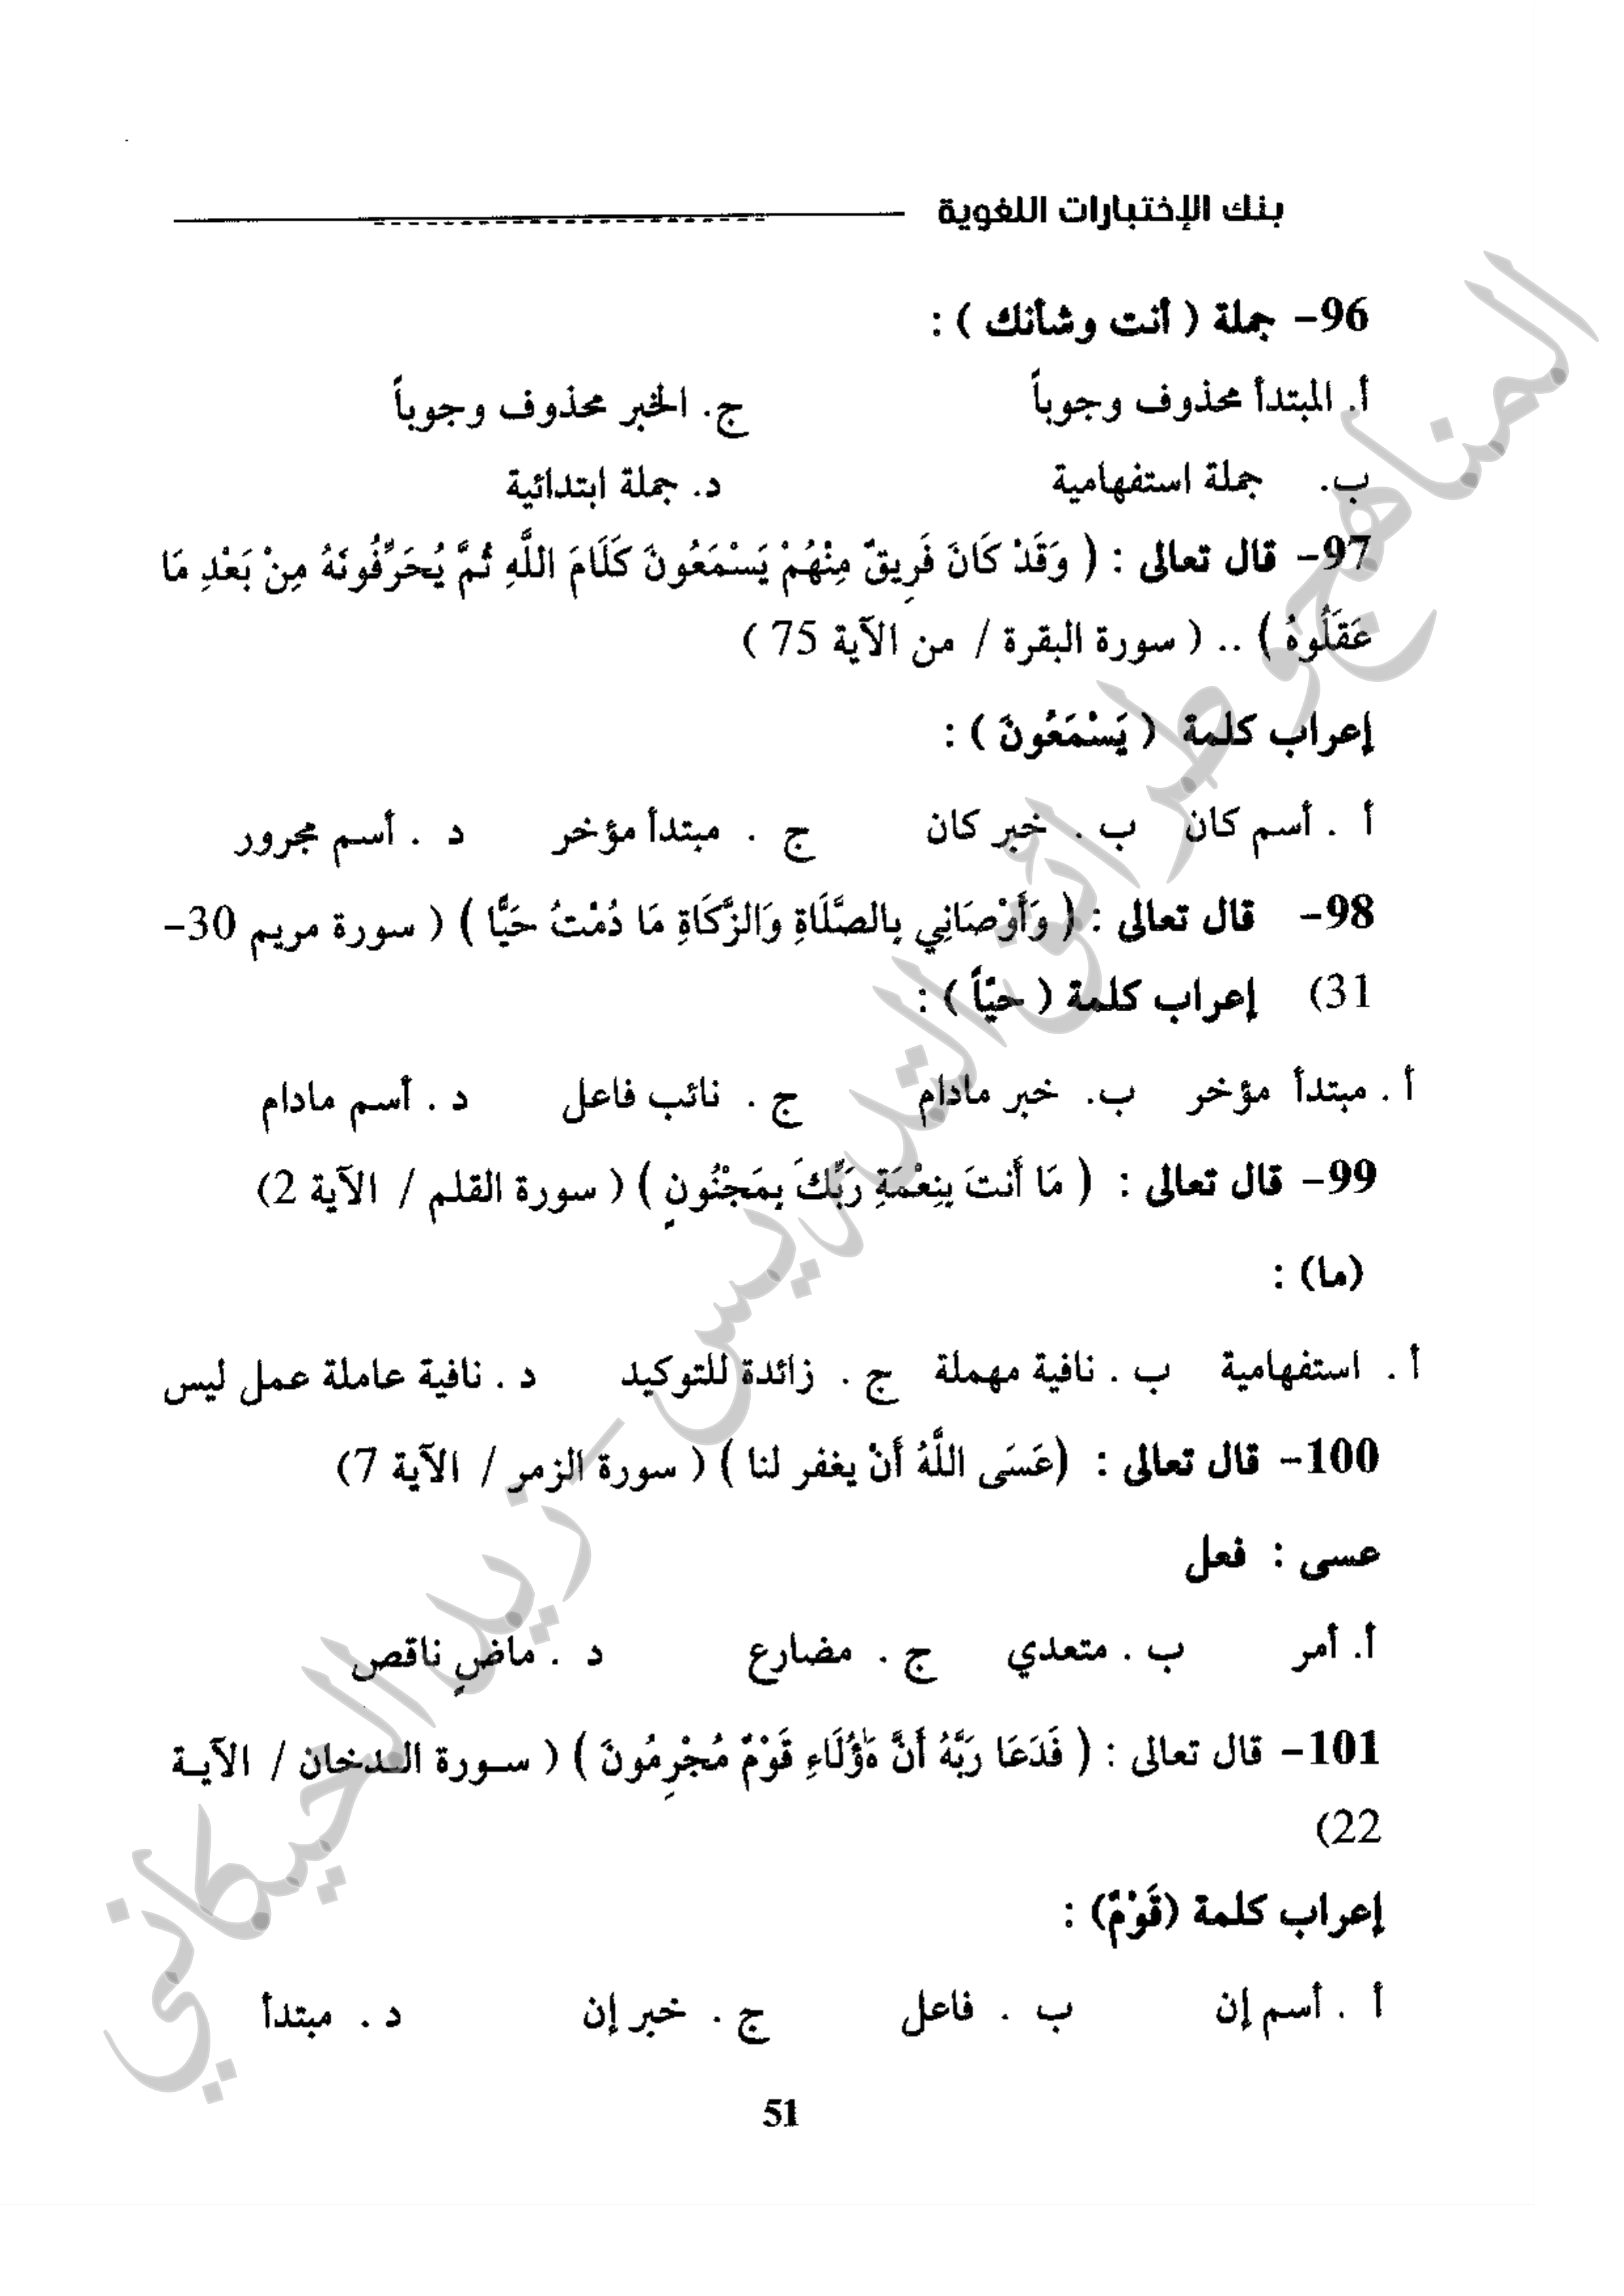 بنك الإختبارات اللغوية
96- جملة ( أنت وشأنك ) :
أ. المبتدأ محذوف وجوباً ج. الخبر محذوف وجوباً
ب. جملة استفهامية د. جملة ابتدائية
97- قال تعالى : ( وَقَدْ كَانَ فَرِيقٌ مِنْهُمْ يَسْمَعُونَ كَلَامَ اللَّهِ ثُمَّ يُحَرِّفُونَهُ مِنْ بَعْدِ مَا
عَقَلُوهُ ) .. ( سورة البقرة / من الآية 75 )
إعراب كلمة ( يَسْمَعُونَ ) :
أ . أسم كان ب . خبر كان ج . مبتدأ مؤخر د . أسم مجرور
98- قال تعالى : ( وَأَوْصَانِي بِالصَّلَاةِ وَالزَّكَاةِ مَا دُمْتُ حَيًّا ) ( سورة مريم 30-
31) إعراب كلمة ( حيّاً ) :
أ . مبتدأ مؤخر ب. خبر مادام ج . نائب فاعل د . أسم مادام
99- قال تعالى : ( مَا أَنتَ بِنِعْمَةِ رَبِّكَ بِمَجْنُونٍ ) ( سورة القلم / الآية 2)
(ما) :
أ . استفهامية ب . نافية مهملة ج . زائدة للتوكيد د . نافية عاملة عمل ليس
100- قال تعالى : (عَسَى اللَّهُ أَنْ يغفر لنا ) ( سورة الزمر / الآية 7)
عسى : فعل
أ. أمر ب . متعدي ج . مضارع د . ماضٍ ناقص
101- قال تعالى : ( فَدَعَا رَبَّهُ أَنَّ هَٰؤُلَاءِ قَوْمٌ مُجْرِمُونَ ) ( سـورة الـدخان / الآيـة
22)
إعراب كلمة (قَوْمٌ) :
أ . أسم إن ب . فاعل ج . خبر إن د . مبتدأ
51
المناهج وطرائق التدريس - زيد الحيكاني